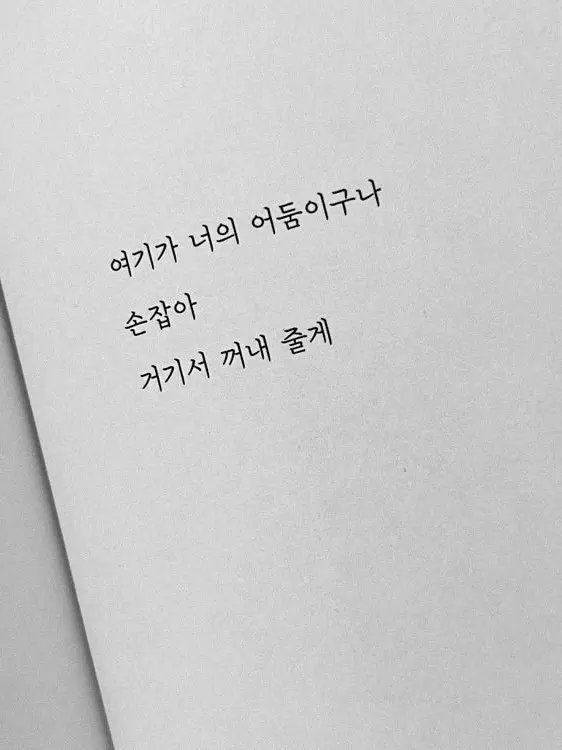 여기가 너의 어둠이구나
손잡아
거기서 꺼내 줄게